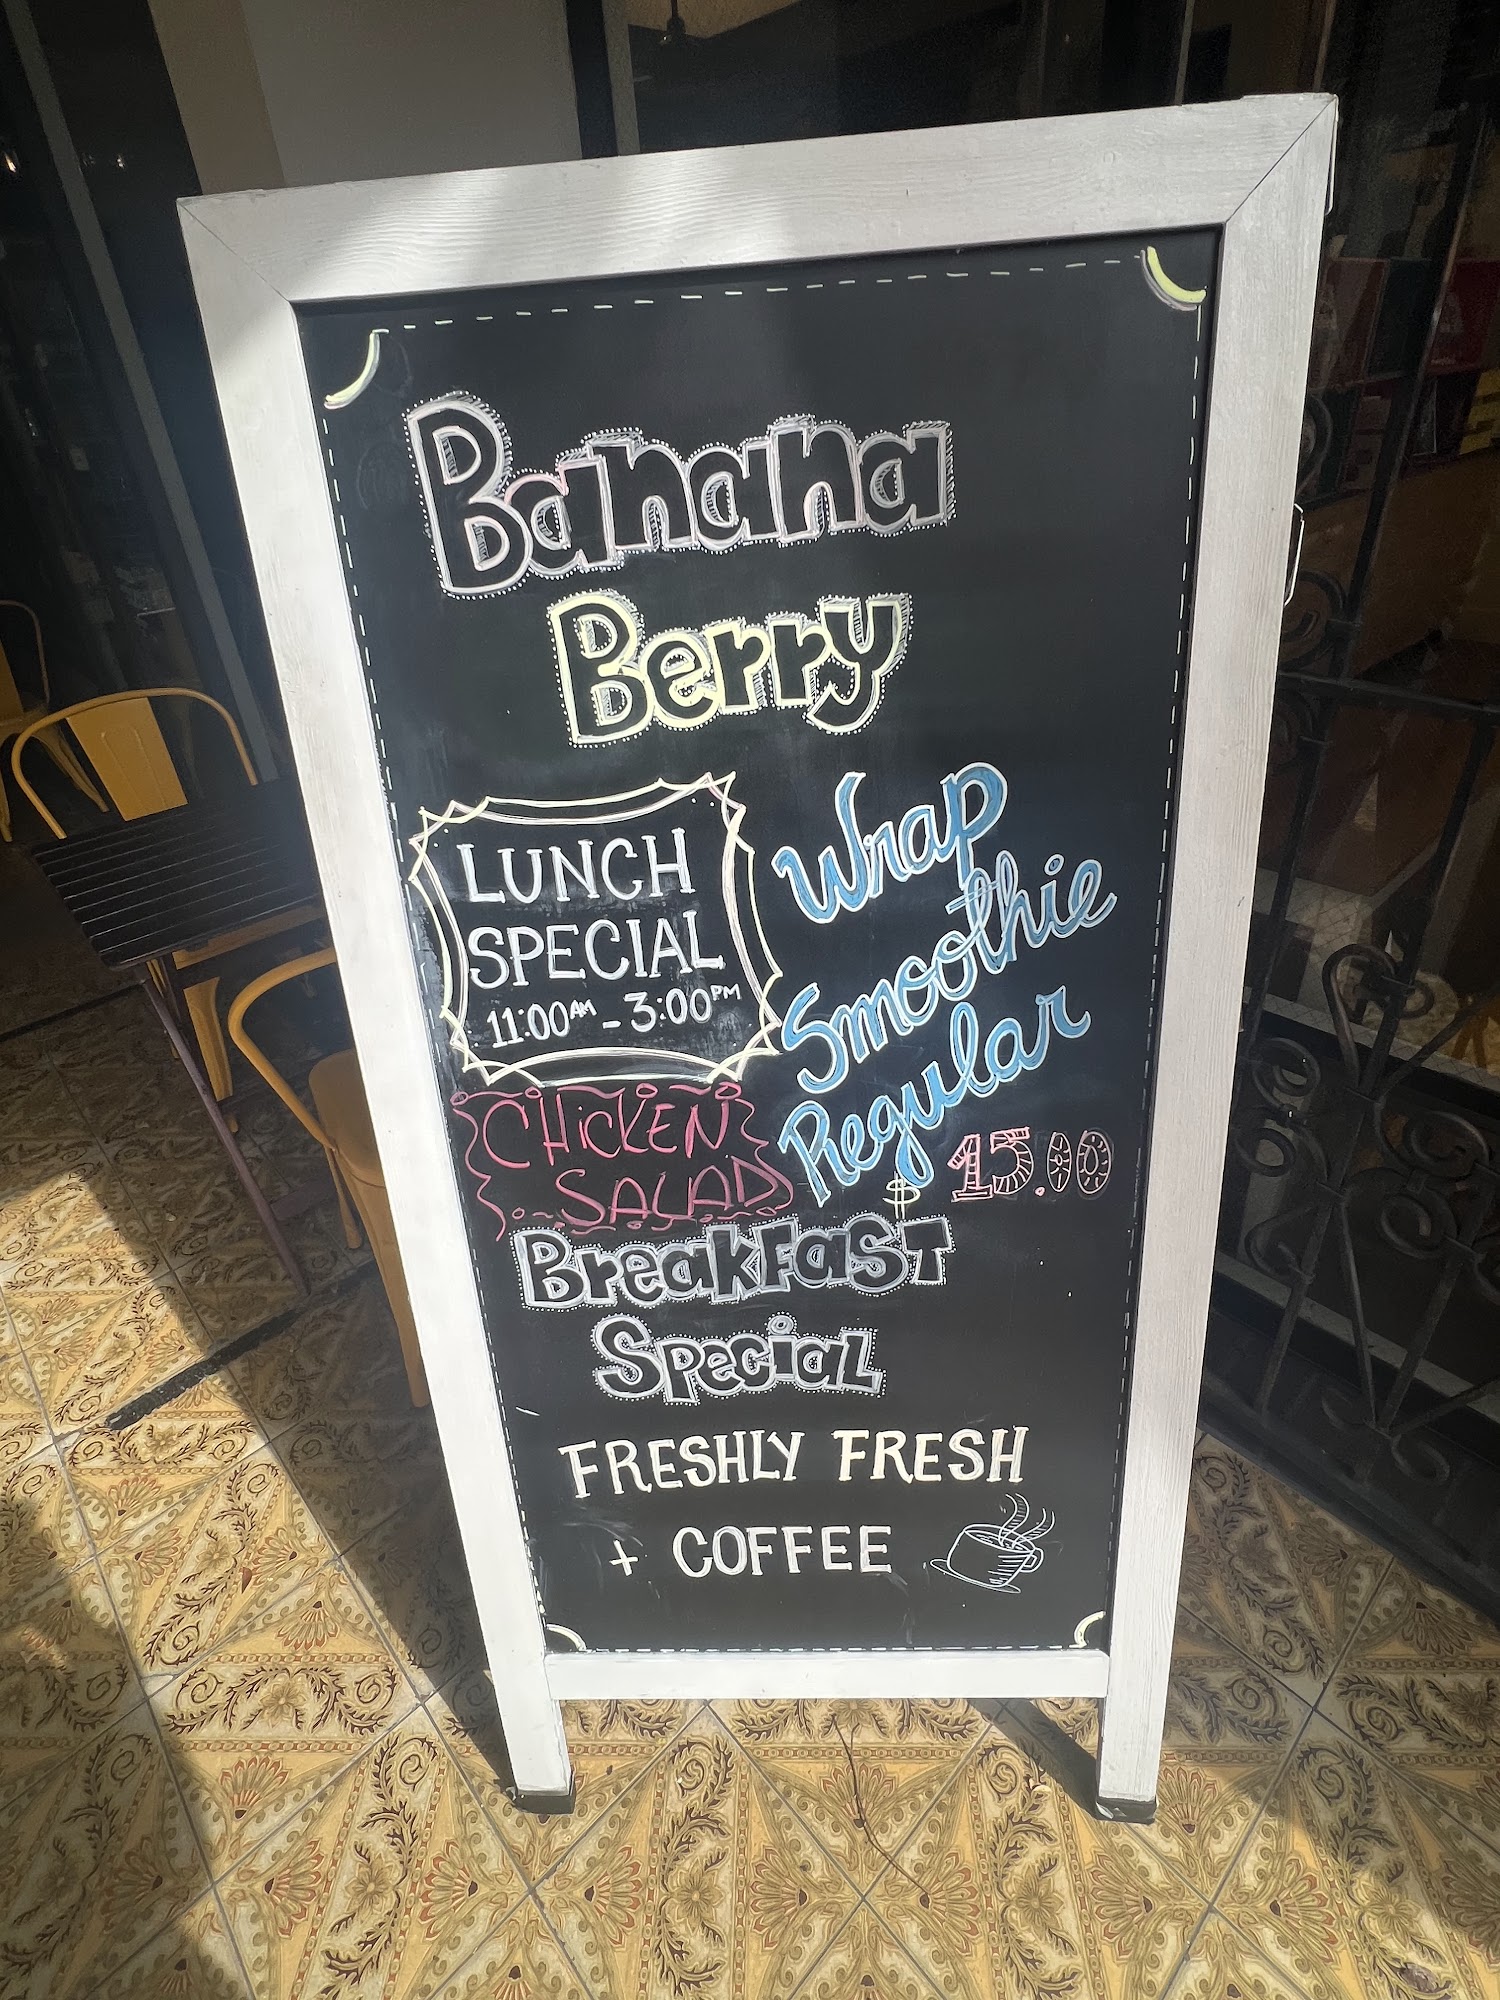 Banana
Berry
LUNCH
SPECIAL
11:00AM - 3:00PM
CHiCKEN
SALAD
Wrap
Smoothie
Regular
$ 15.00
BreakFasT
Special
FRESHLY FRESH
+ COFFEE